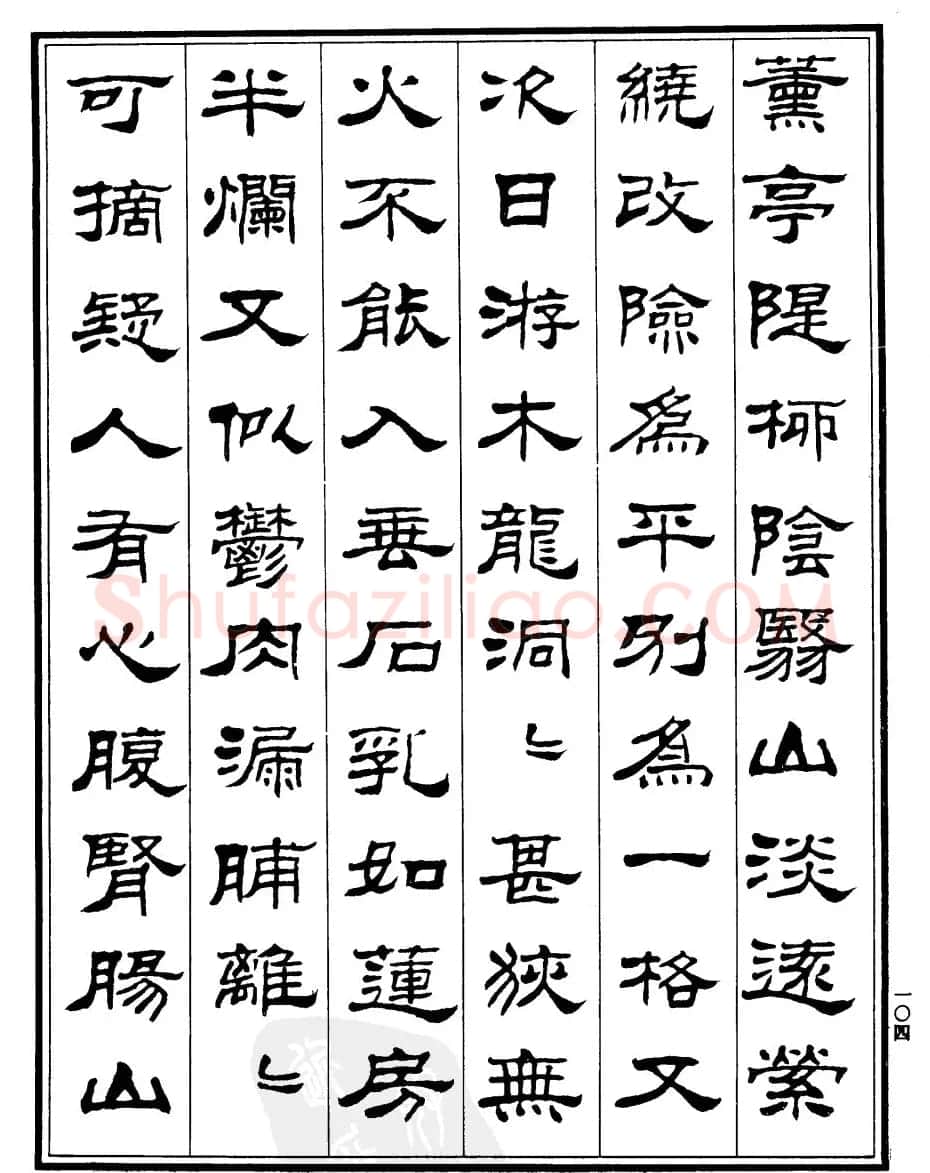 薰亭隄柳陰翳山淡遠縈
繞改險為平別為一格又
次日游木龍洞〻甚狹無
火不能入垂石乳如蓮房
半爛又似鬱肉漏脯離〻
可摘疑人有心腹腎腸山
一〇四
Shufaziliao.COM